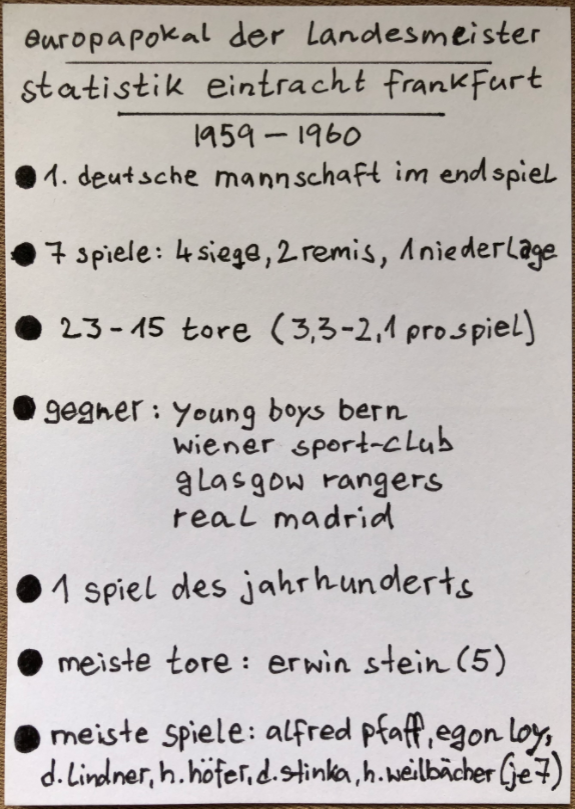 europapokal der landesmeister
statistik eintracht frankfurt
1959 – 1960
● 1. deutsche mannschaft im endspiel
● 7 spiele: 4 siege, 2 remis, 1 niederlage
● 23 - 15 tore (3,3 - 2,1 pro spiel)
● gegner: young boys bern
wiener sport-club
glasgow rangers
real madrid
● 1 spiel des jahrhunderts
● meiste tore: erwin stein (5)
● meiste spiele: alfred pfaff, egon loy,
d. lindner, h. höfer, d. stinka, h. weilbächer (je 7)